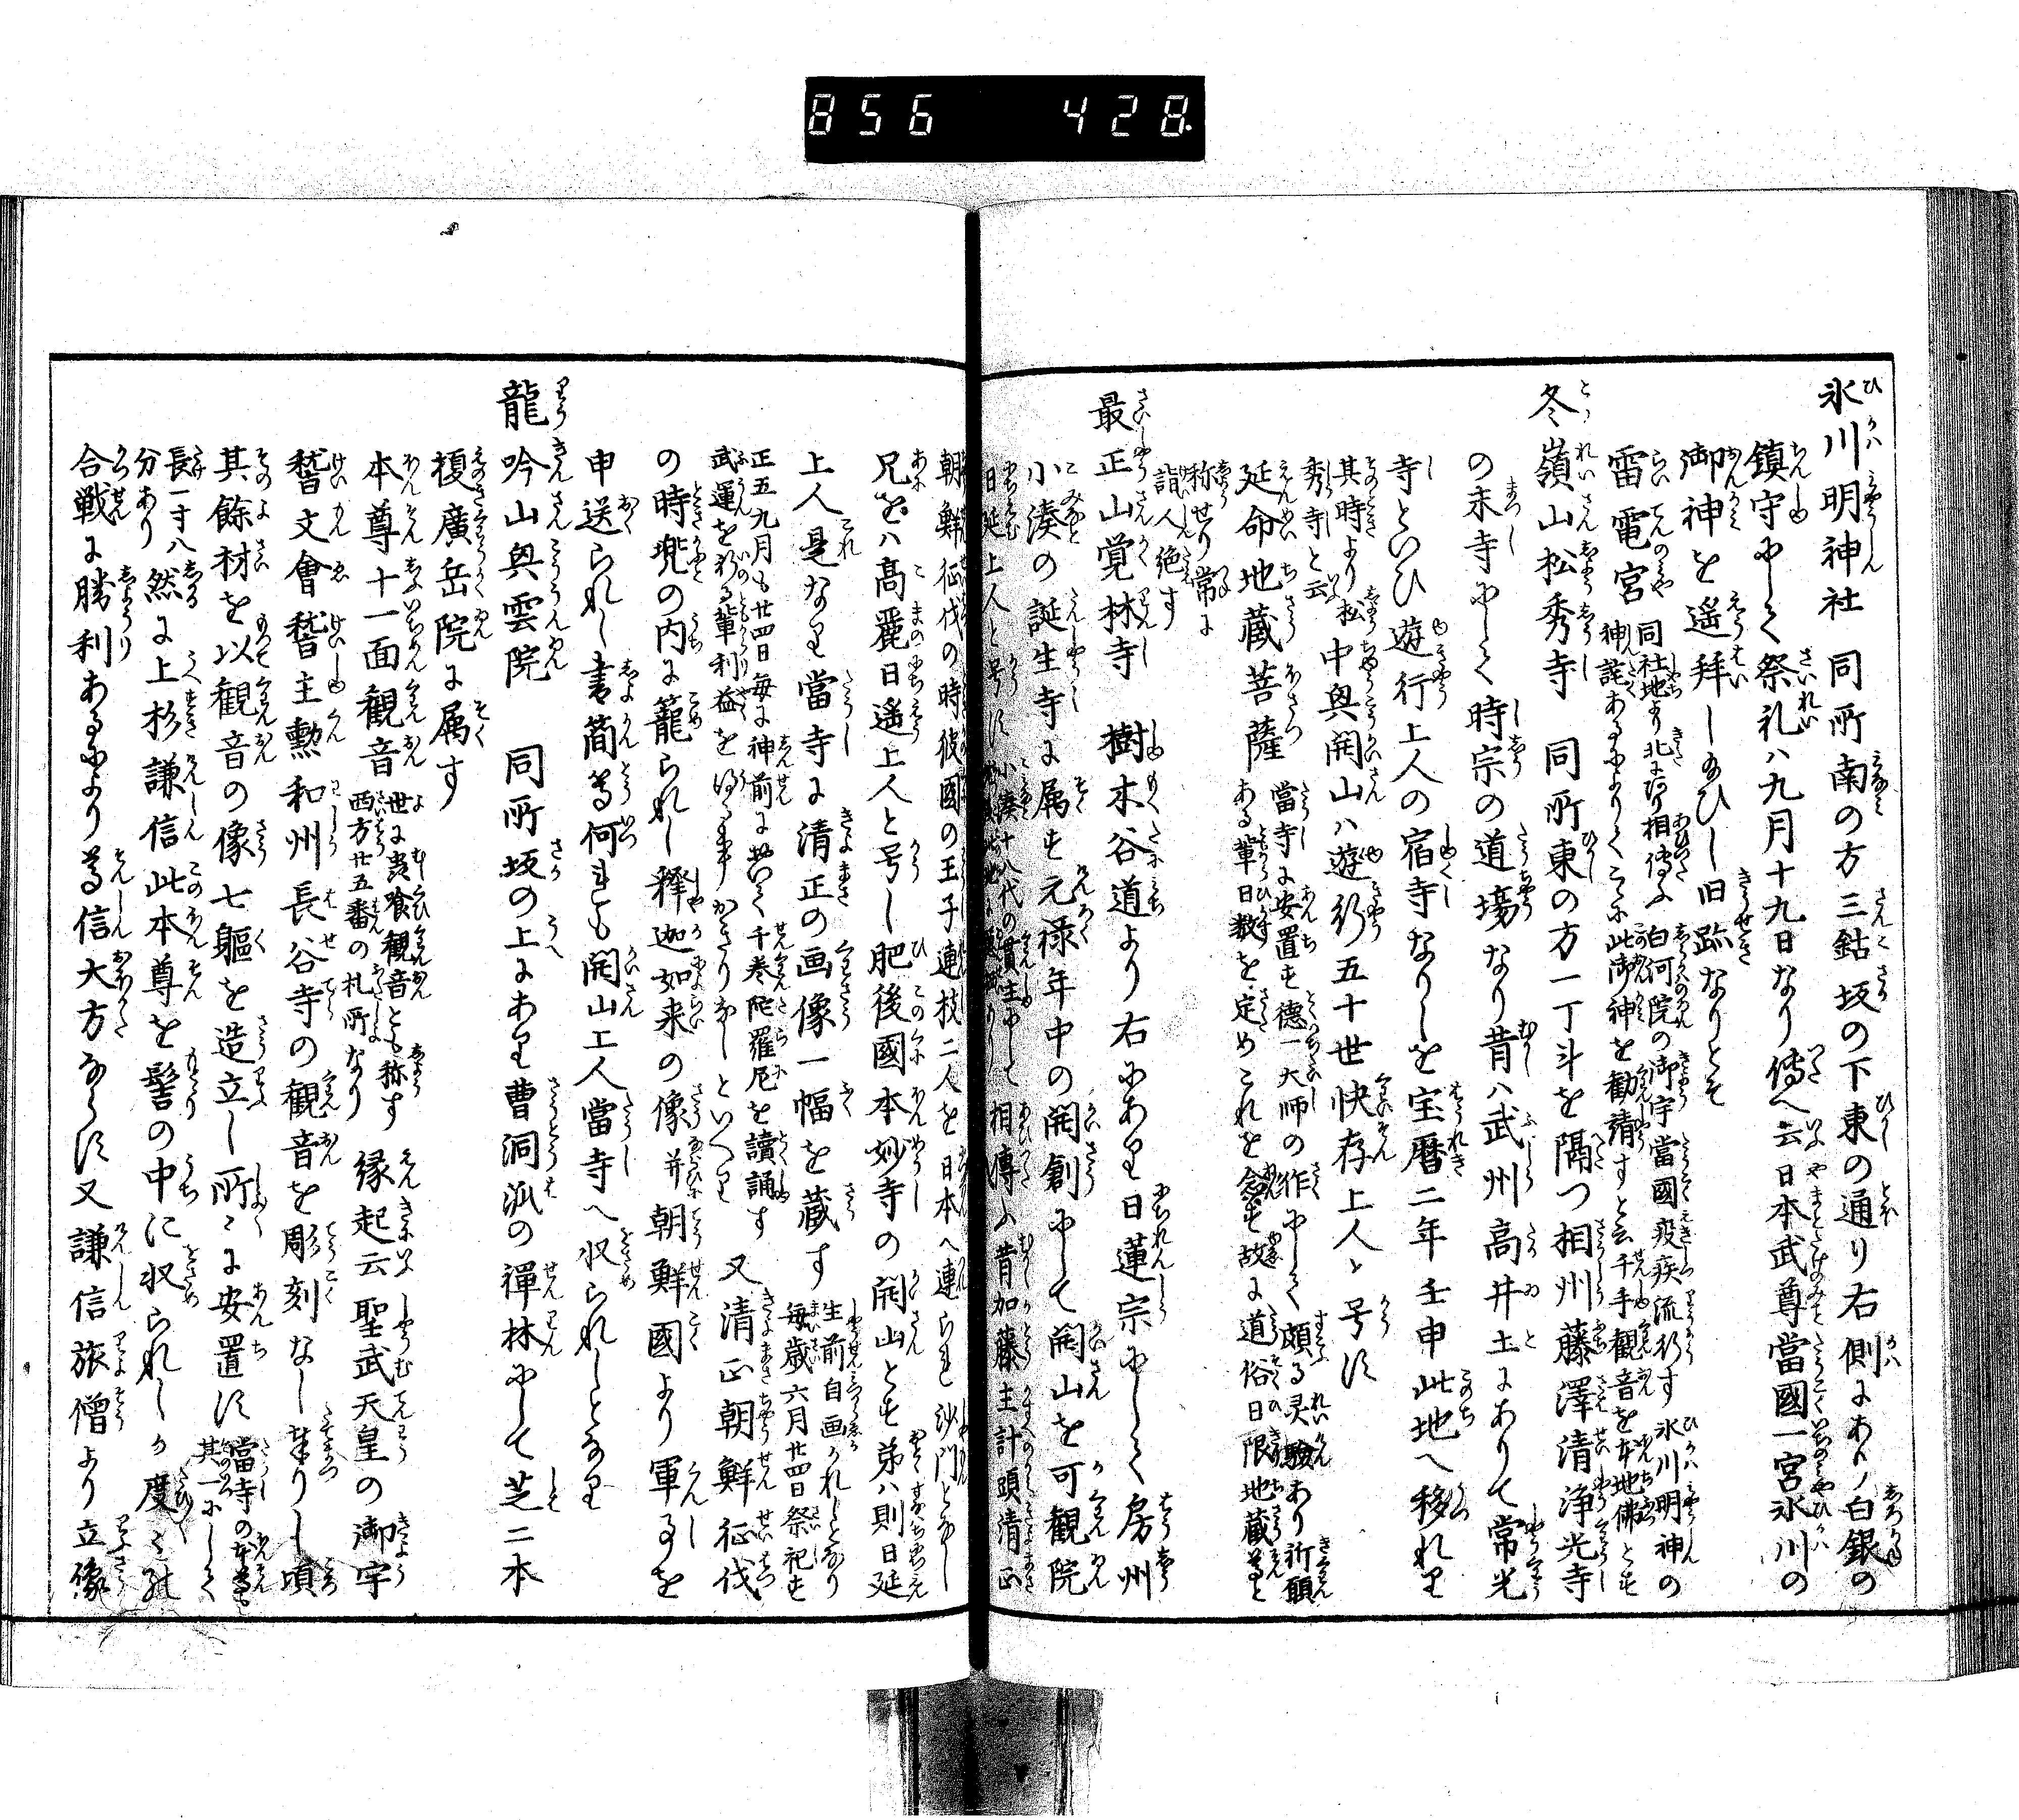 856 428
氷川明神社 同所南の方三鈷坂の下東の通り右側にあり白銀の
鎮守にして祭礼ハ九月十九日なり傳へ云日本武尊當國一宮氷川の
御神を遥拝し給ひし旧跡なりとそ
雷電宮 同社地より北にあり相傳ふ白河院の御宇當國疫疾流行す氷川明神の
神詫あるによりてこゝに此御神を勧請すと云千手観音を本地佛とす
冬嶺山松秀寺 同所東の方一丁斗を隔つ相州藤澤清浄光寺
の末寺にして時宗の道場なり昔ハ武州高井土にありて常光
寺といひ遊行上人の宿寺なりしを宝暦二年壬申此地へ移れり
其時より松
秀寺と云
中興開山ハ遊行五十世快存上人と号す
延命地蔵菩薩 當寺に安置す徳一大師の作にして頗る灵驗あり祈願
ある輩日数を定めこれを念す故に道俗日限地蔵尊と
称せり常に
詣人絶す
最正山覚林寺 樹木谷道より右にあり日蓮宗にして房州
小湊の誕生寺に属す元禄年中の開創にして開山を可観院
日延上人と号す
小湊十八代の貫主にして
相傳ふ昔加藤主計頭清正
朝鮮征伐の時彼國の王子連枝二人を日本へ連られ沙門となし
兄をハ高麗日遥上人と号し肥後國本妙寺の開山とす弟ハ則日延
上人是なり當寺に清正の画像一幅を蔵す
生前自画かれしとなり
毎歳六月廿四日祭祀す
正五九月も廿四日毎に神前においく千巻陀羅尼を讀誦す
武運を祈る輩利益を得る事かきりなしといへり
又清正朝鮮征伐
の時兜の内に籠られし釋迦如来の像并朝鮮國より軍事を
申送られし書簡等何れも開山上人當寺へ収られしとなり
龍吟山興雲院 同所坂の上にあり曹洞派の禅林にして芝二本
榎廣岳院に属す
本尊十一面観音
世に蚕喰観音とも称す
西方廿五番の札所なり
縁起云聖武天皇の御宇
稽文會稽主勲和州長谷寺の観音を彫刻なし奉りし頃
其餘材を以観音の像七軀を造立し所〻に安置す
當寺の本尊も
其一にして
長一寸八
分あり
然に上杉謙信此本尊を髻の中に収られしか度〻の
合戦に勝利あるにより尊信大方ならす又謙信旅僧より立像